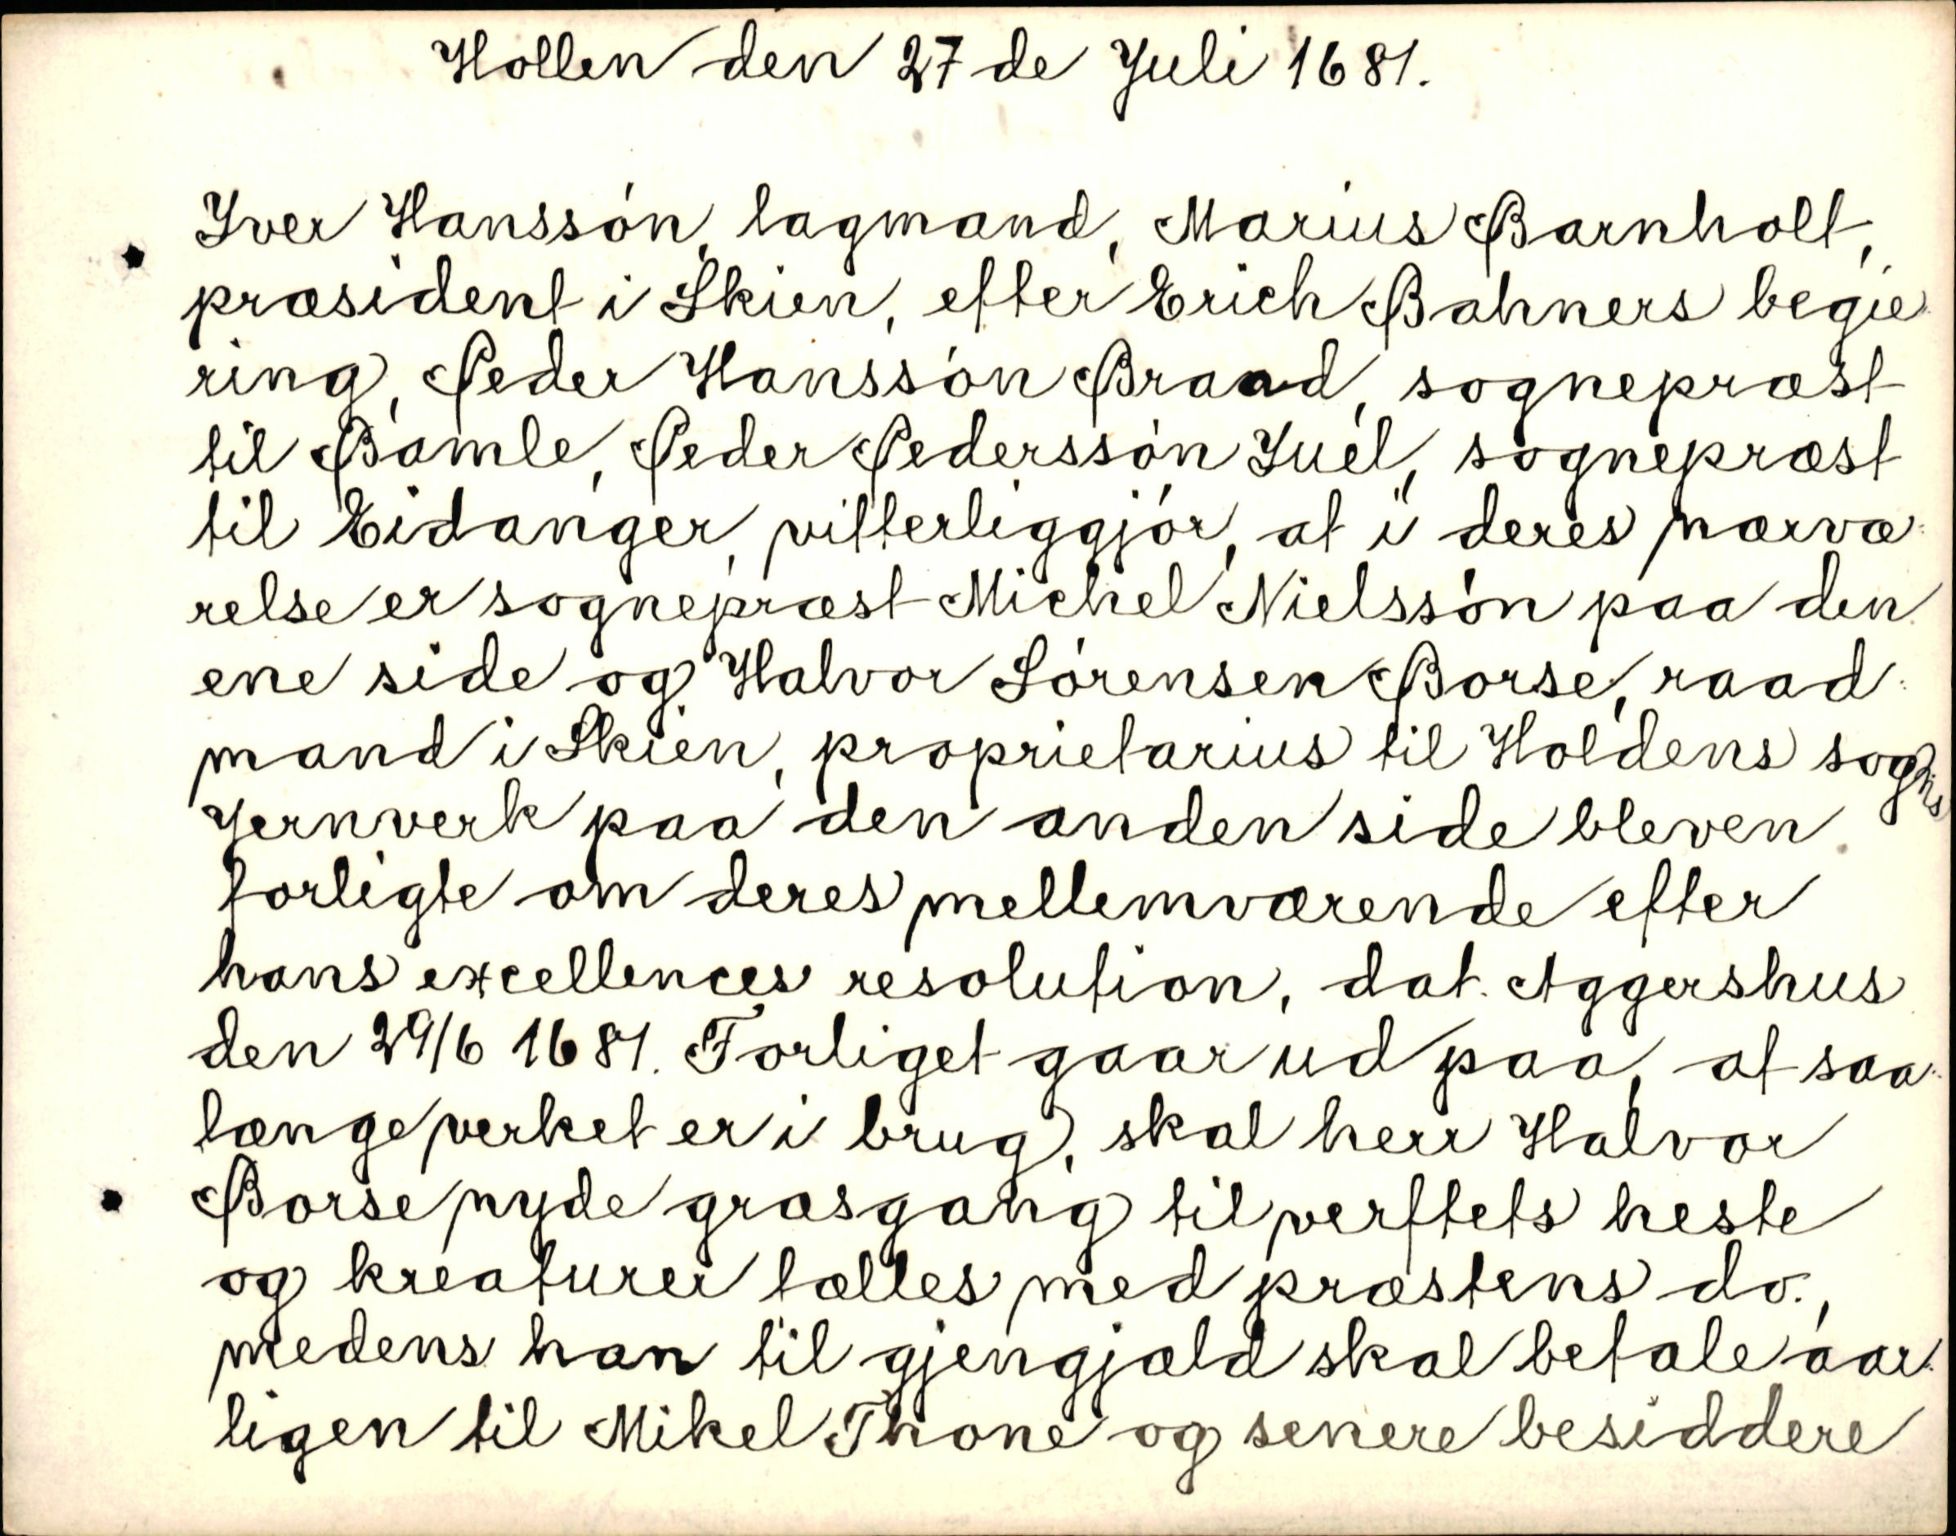 Hollen den 27de Juli 1681.
Iver Hanssón, lagmand, Marius Barnholt,
præsident i Skien, efter Erich Bahners begie-
ring, Peder Hanssón Braad, sognepræst
til Bamle, Peder Pederssón Juel, sognepræst
til Eidanger, vitterliggjór, at i deres nærvæ-
relse er sognepræst Michel Nielssón paa den
ene side og Halvor Sórensen Borse, raad-
mand i Skien, proprietarius til Holdens sogns
Jernverk paa den anden side bleven
forligte om deres mellemværende efter
hans excellences resolution, dat. Aggershus
den 29/6 1681. Forliget gaar ud paa, at saa-
længe verket er i brug, skal herr Halvor
Borse nyde græsgang til verftets heste
og kreaturer fælles med præstens do.,
medens han til gjengjæld skal betale aar-
ligen til Mikel Thone og senere besiddere